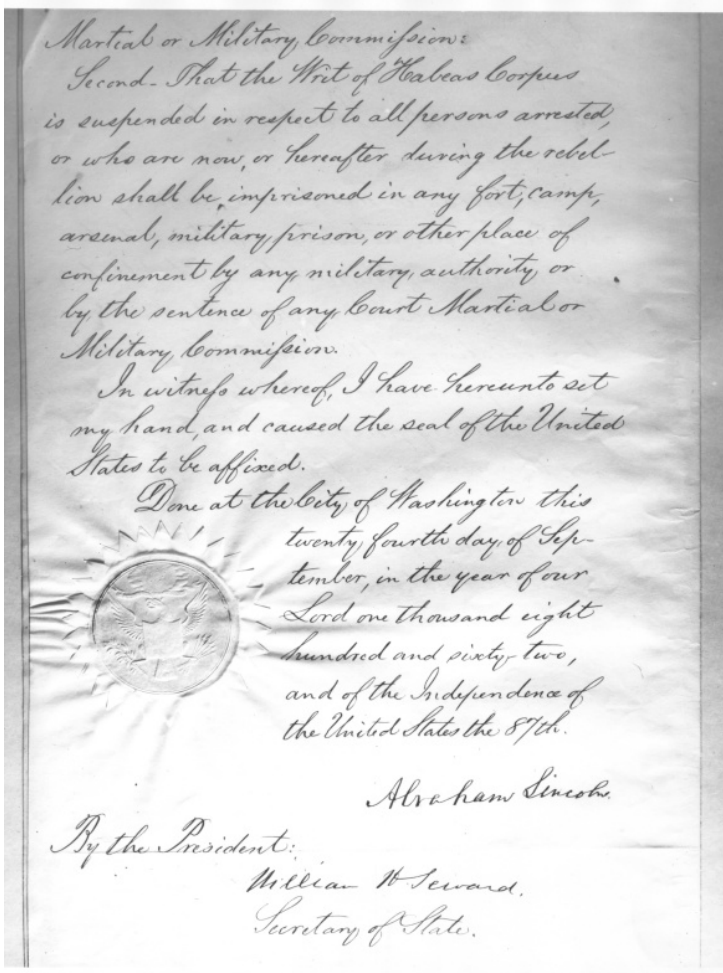 Martial or Military Commission:
Second- That the Writ of Habeas Corpus
is suspended in respect to all persons arrested,
or who are now, or hereafter during the rebel-
lion shall be, imprisoned in any fort, camp,
arsenal, military prison, or other place of
confinement by any military authority or
by the sentence of any Court Martial or
Military Commission.
In witness whereof, I have hereunto set
my hand, and caused the seal of the United
States to be affixed.
Done at the City of Washington this
twenty fourth day of Sep-
tember, in the year of our
Lord one thousand eight
hundred and sixty-two,
and of the Independence of
the United States the 87th.
Abraham Lincoln.
By the President:
William H Seward.
Secretary of State.